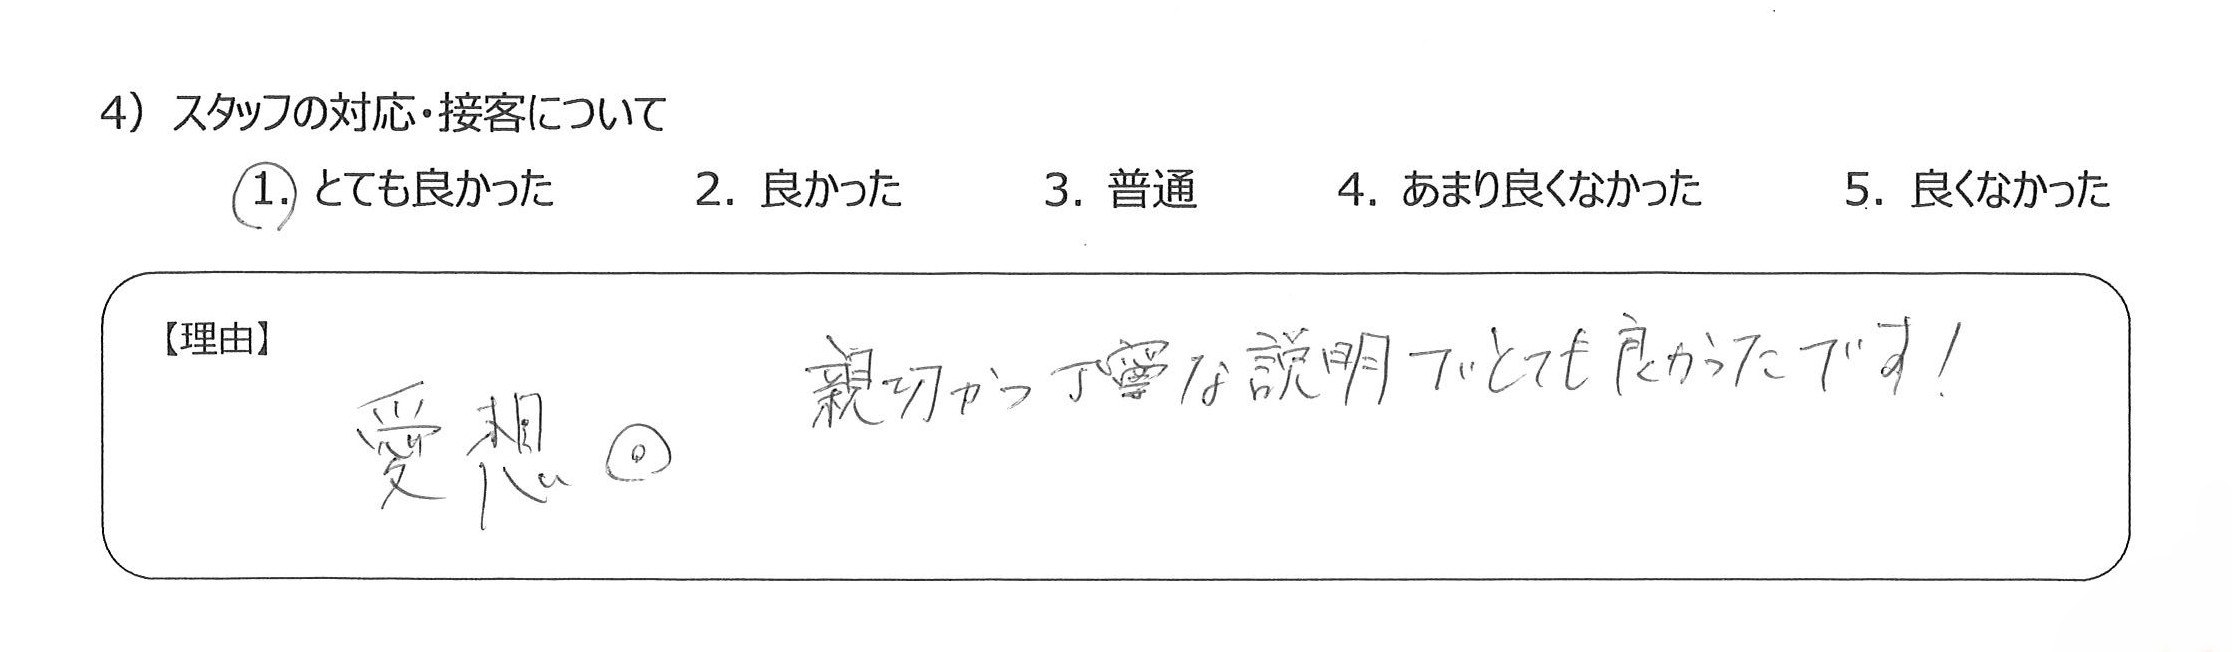 4）スタッフの対応・接客について
1. とても良かった 2. 良かった 3. 普通 4. あまり良くなかった 5. 良くなかった
【理由】
親切かつ丁寧な説明でとても良かったです！
愛想◎